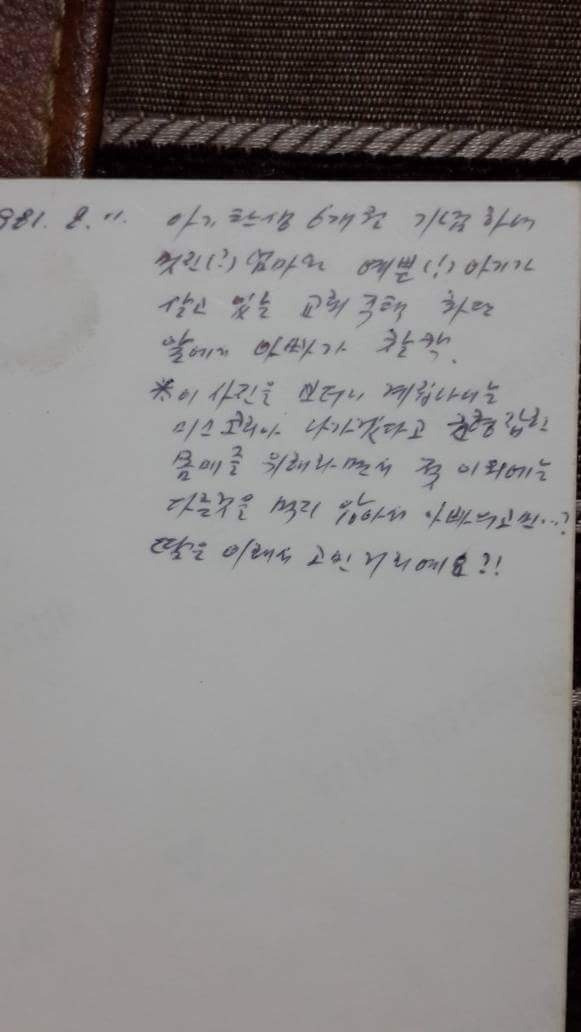 981. 8. 11. 아기 탄생 6개월 기념하여
멋진(?) 엄마와 예쁜(!) 아기가
살고 있는 교회 주택 화단
앞에서 아빠가 찰칵.
*이 사진을 보더니
미스코리아 나가겠다고 균형잡힌
몸매를 위해라면서 젖 이외에는
다른것을 먹지 않아서 아빠의고민...?
딸은 이래서 고민거리예요?!